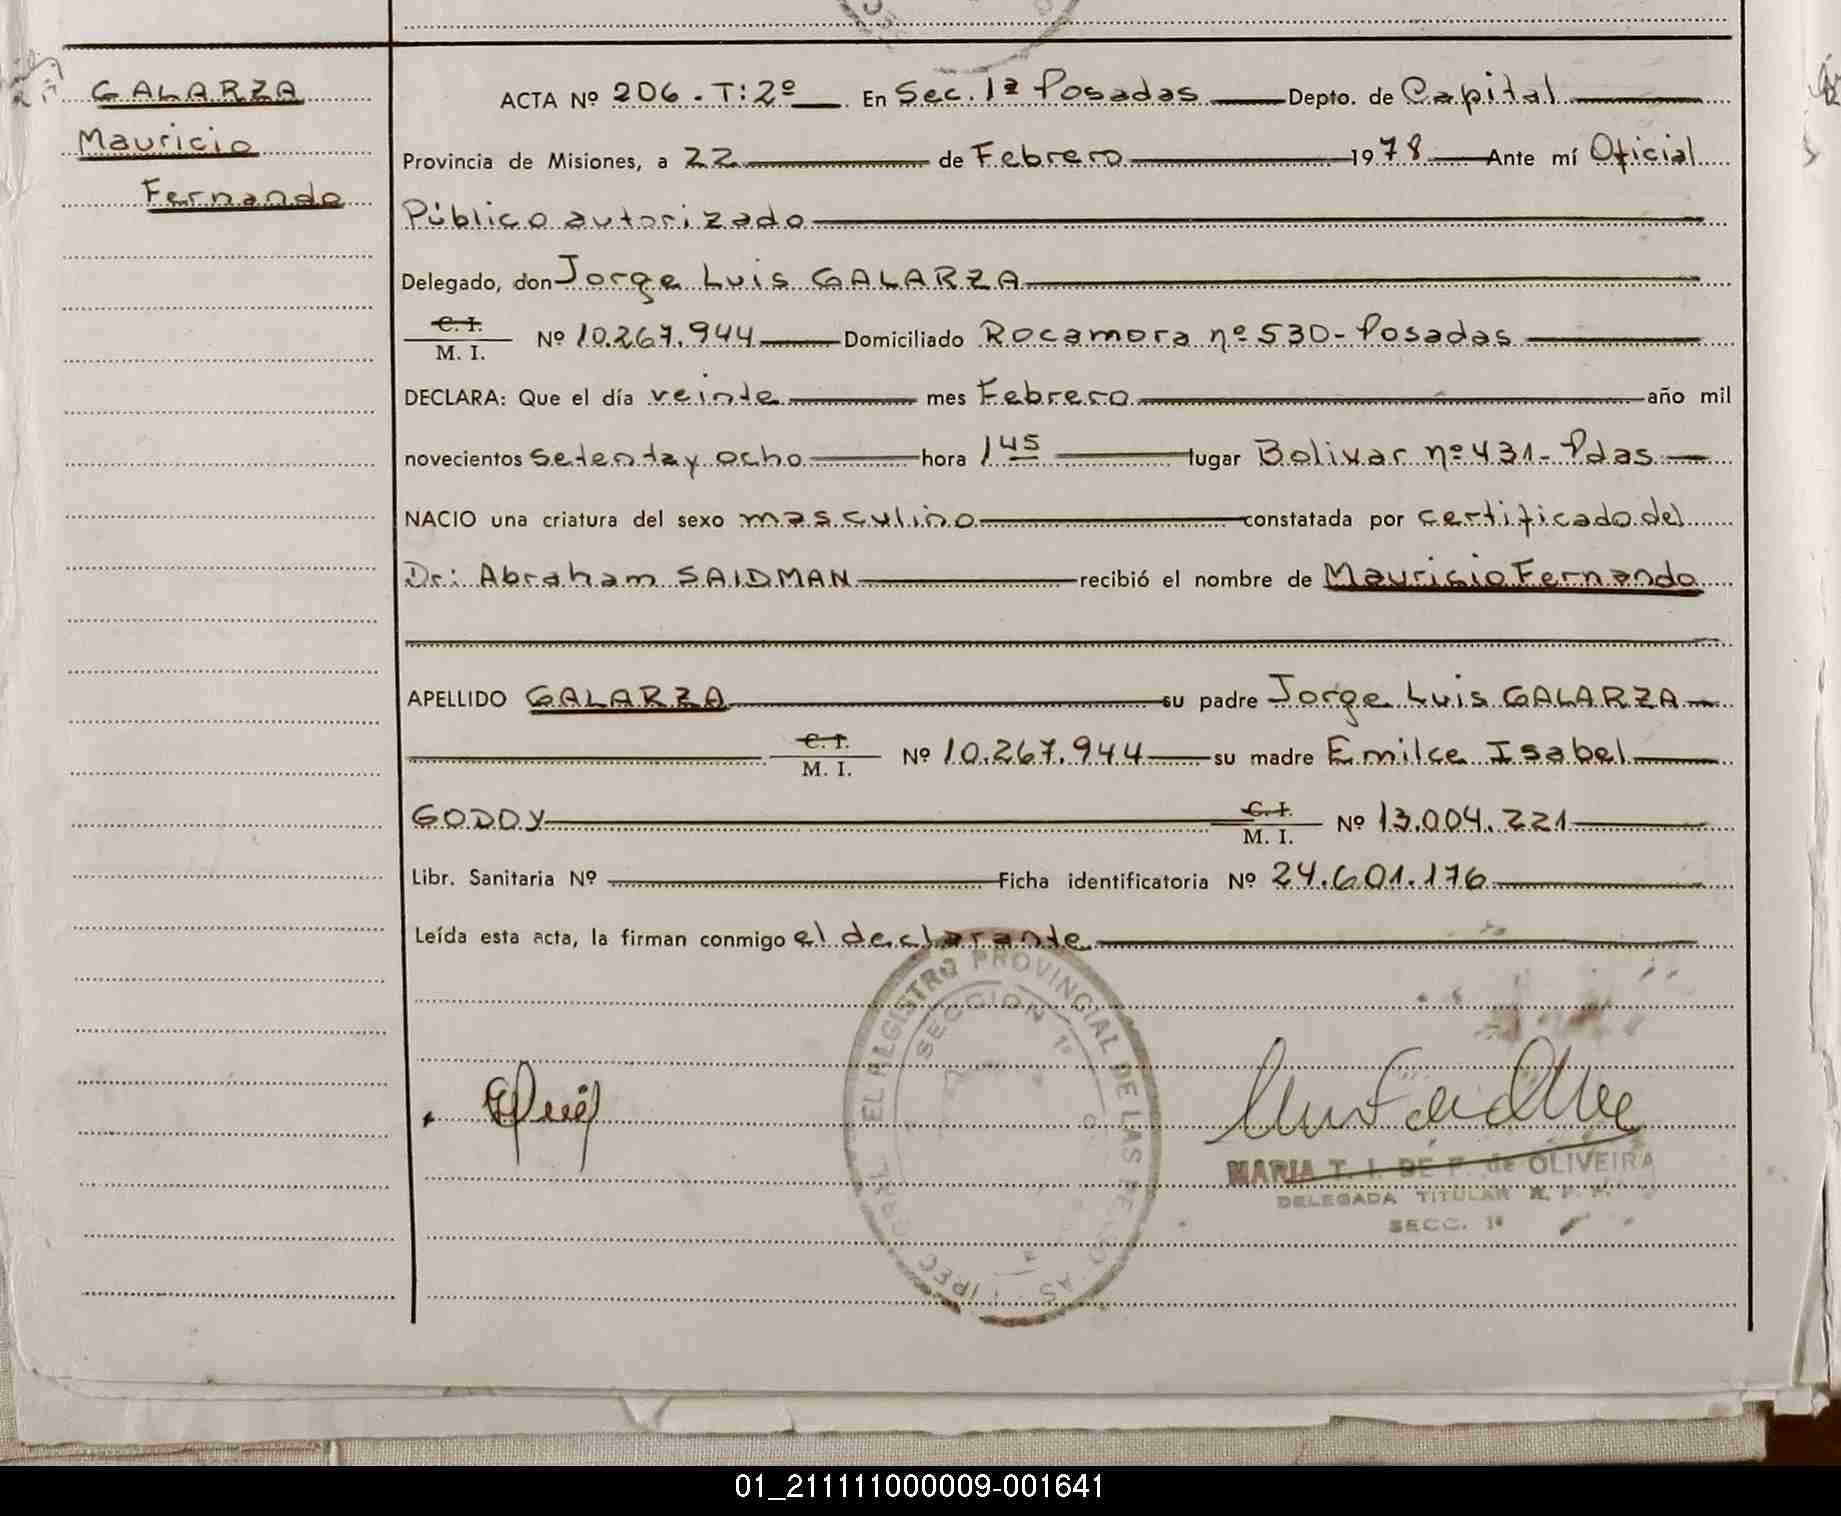 GALARZA
Mauricio
Fernando
ACTA Nº 206 - T: 2º En Sec. 1ª Posadas Depto. de Capital
Provincia de Misiones, a 22 de Febrero 1978 Ante mí Oficial
Público autorizado
Delegado, don Jorge Luis GALARZA
C. I.
M. I. Nº 10.267.944 Domiciliado Rocamora nº 530 - Posadas
DECLARA: Que el día veinte mes Febrero año mil
novecientos setenta y ocho hora 1 45 lugar Bolivar nº 431 - Pdas
NACIO una criatura del sexo masculino constatada por certificado del
Dr: Abraham SAIDMAN recibió el nombre de Mauricio Fernando
APELLIDO GALARZA su padre Jorge Luis GALARZA
C. I.
M. I. Nº 10.267.944 su madre Emilce Isabel
GODOY C. I.
M. I. Nº 13.004.221
Libr. Sanitaria Nº Ficha identificatoria Nº 24.601.176
Leída esta acta, la firman conmigo el declarante
REGISTRO PROVINCIAL DE LAS
SECCION 1ª
MARIA T. I. DE F. de OLIVEIRA
DELEGADA TITULAR R. P. P.
SECC. 1ª
01_211111000009-001641